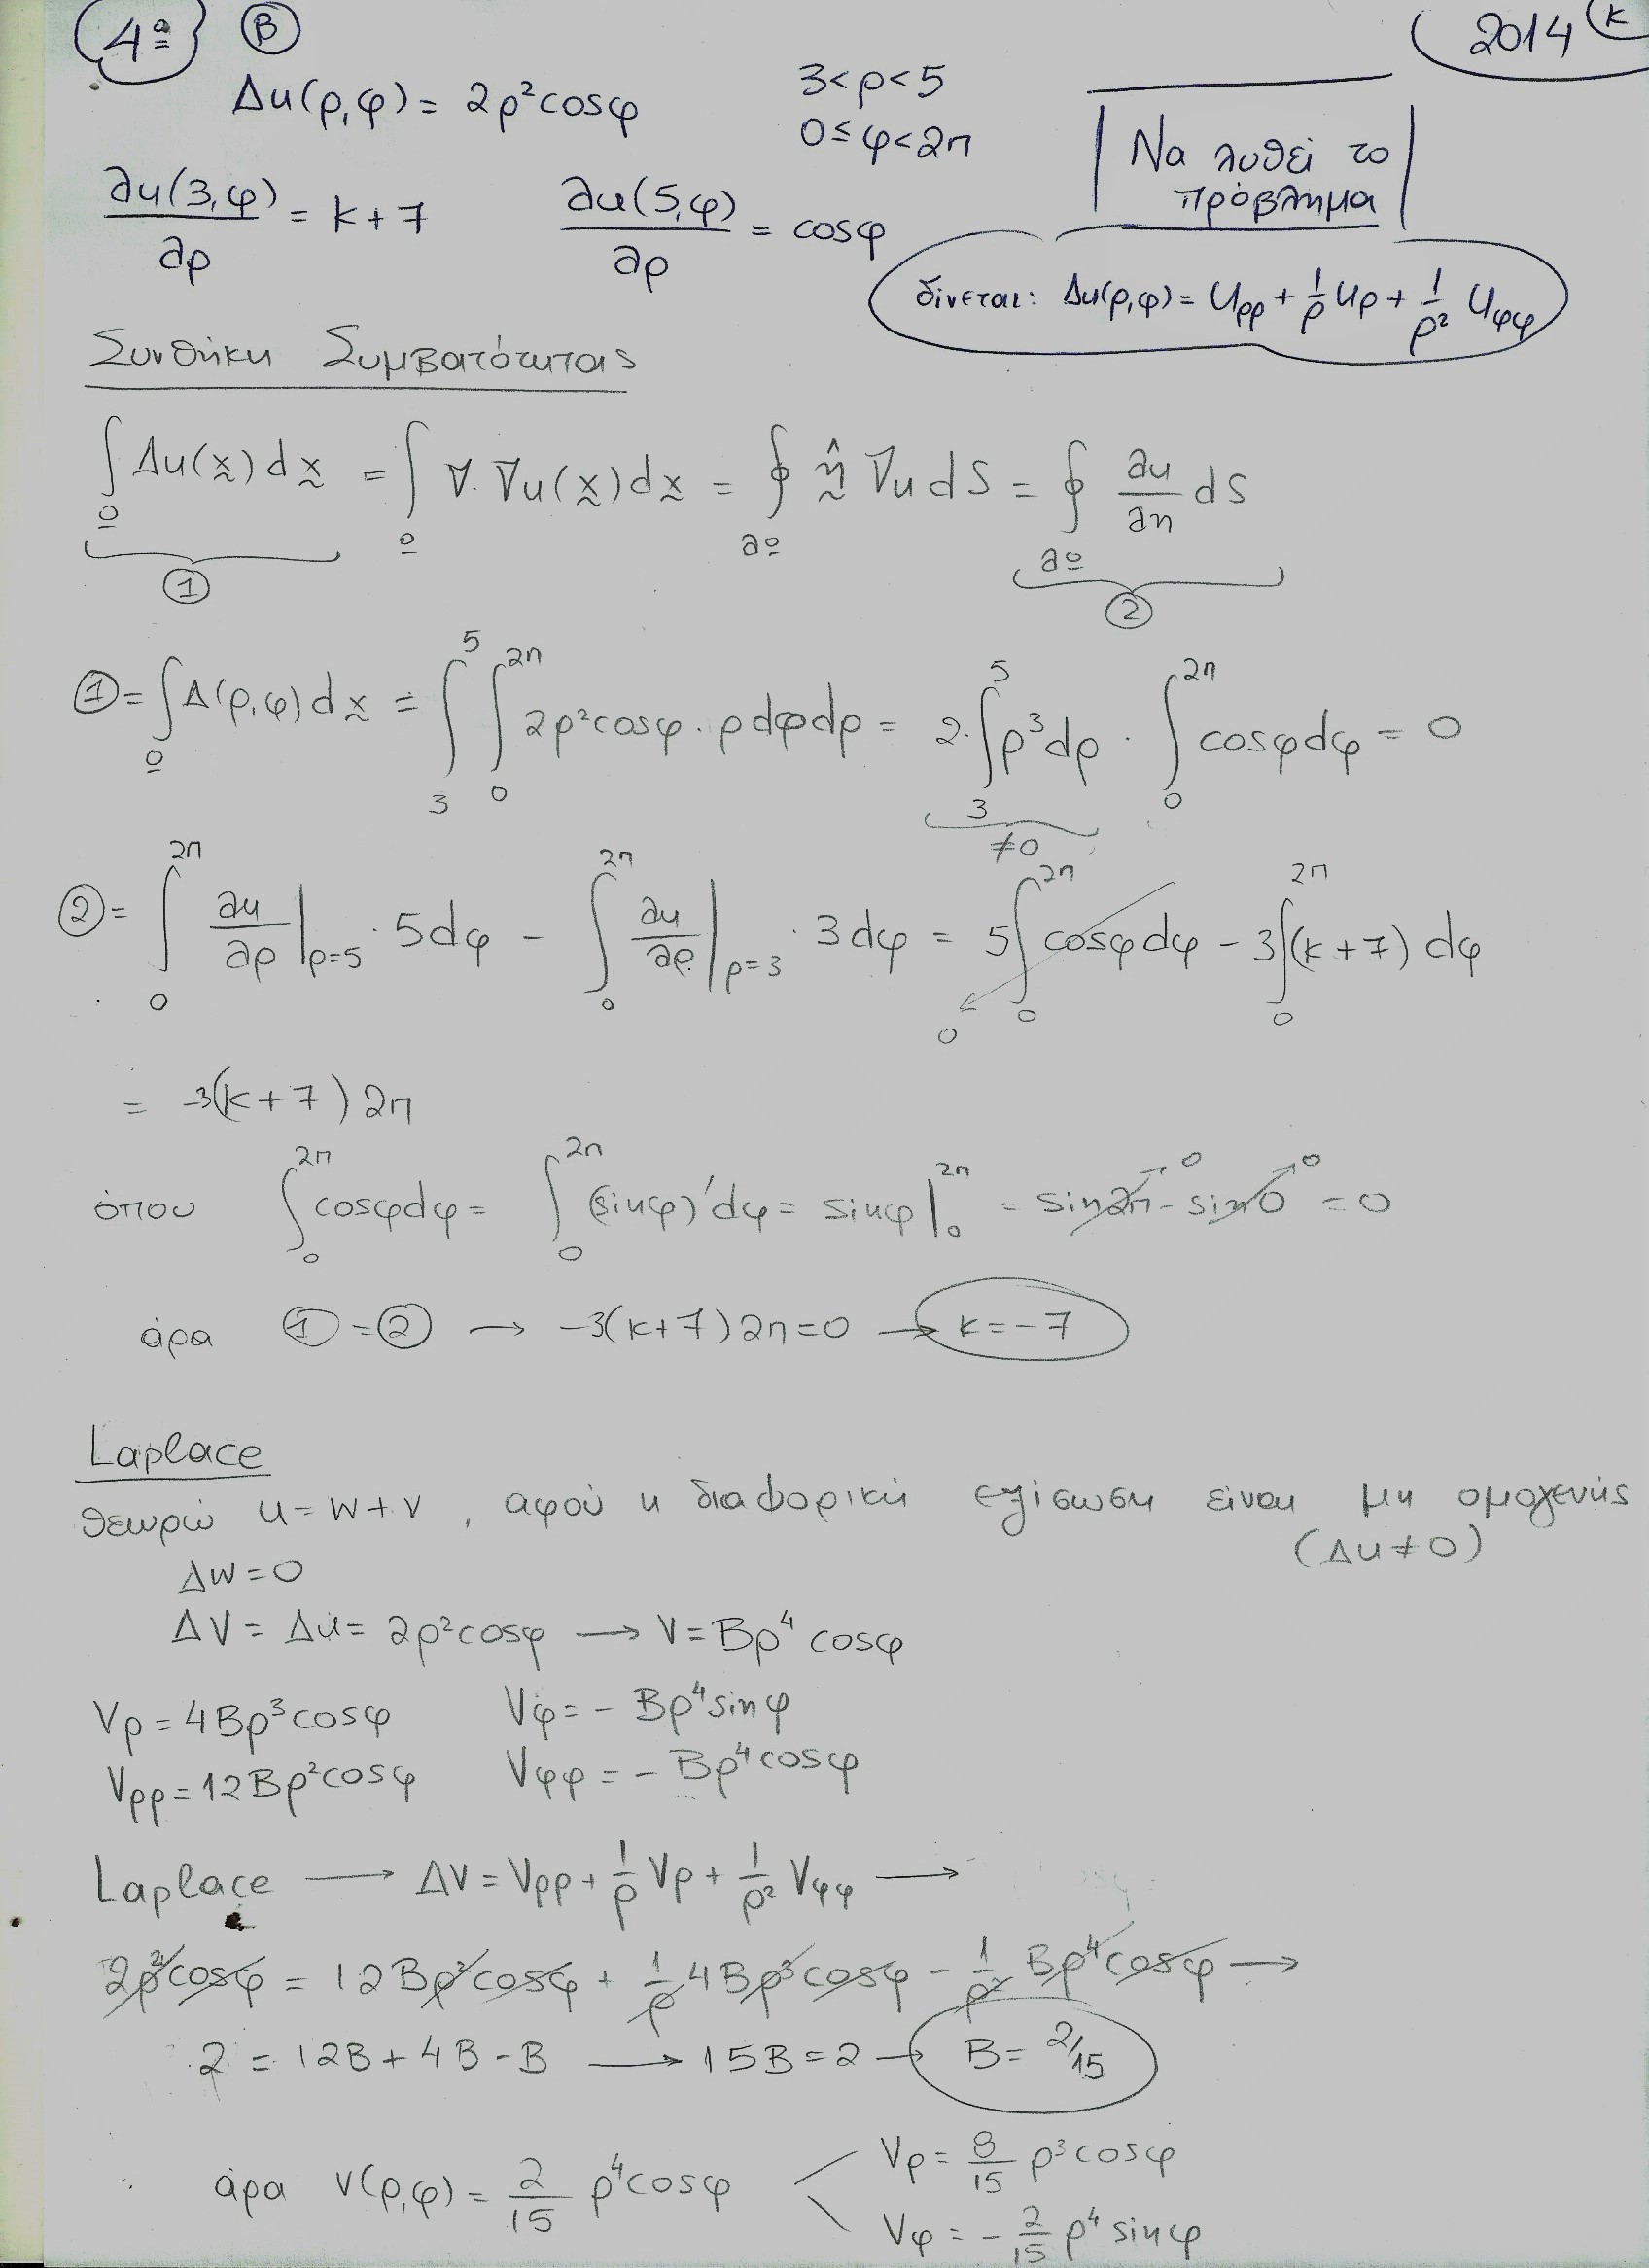 4º Β 2014 (κ
Δu(ρ,φ) = 2ρ²cosφ 3<ρ<5
0≤φ<2π
Να λυθεί το
πρόβλημα
∂u(3,φ)/∂ρ = k+7 ∂u(5,φ)/∂ρ = cosφ
δίνεται: Δu(ρ,φ) = u_ρρ + 1/ρ u_ρ + 1/ρ² u_φφ
Συνθήκη Συμβατότητας
∫_Ω Δu(x)dx = ∫_Ω ∇·∇u(x)dx = ∮_∂Ω n̂ ∇u dS = ∮_∂Ω ∂u/∂n dS
① ②
① = ∫_Ω Δ(ρ,φ)dx = ∫_3^5 ∫_0^2π 2ρ²cosφ · ρ dφdρ = 2·∫_3^5 ρ³dρ · ∫_0^2π cosφdφ = 0
≠0
② = ∫_0^2π ∂u/∂ρ|ρ=5 · 5dφ - ∫_0^2π ∂u/∂ρ|ρ=3 · 3dφ = 5∫_0^2π cosφdφ - 3∫_0^2π (k+7) dφ
0
= -3(k+7)2π
όπου ∫_0^2π cosφdφ = ∫_0^2π (sinφ)'dφ = sinφ|_0^2π = sin2π - sin0 = 0
άρα ① = ② → -3(k+7)2π=0 → k=-7
Laplace
θεωρώ u=w+v, αφού η διαφορική εξίσωση είναι μη ομογενής
(Δu≠0)
Δw=0
ΔV = Δu = 2ρ²cosφ → V=Bρ⁴cosφ
Vρ = 4Bρ³cosφ Vφ = - Bρ⁴sinφ
Vρρ = 12Bρ²cosφ Vφφ = - Bρ⁴cosφ
Laplace → ΔV = Vρρ + 1/ρ Vρ + 1/ρ² Vφφ →
2ρ²cosφ = 12Bρ²cosφ + 1/ρ 4Bρ³cosφ - 1/ρ² Bρ⁴cosφ →
2 = 12B + 4B - B → 15B = 2 → B = 2/15
άρα v(ρ,φ) = 2/15 ρ⁴cosφ
Vρ = 8/15 ρ³cosφ
Vφ = - 2/15 ρ⁴sinφ